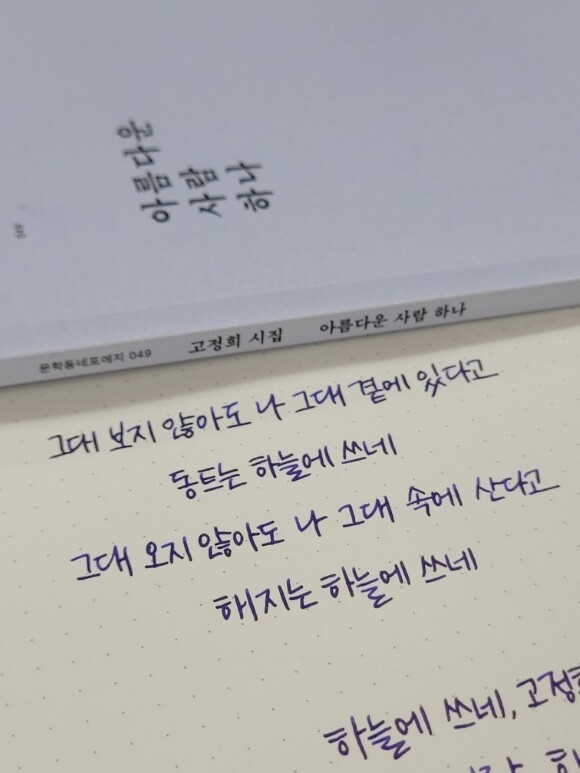 아름다운
사람
하나
049
문학동네포에지 049 고정희 시집 아름다운 사람 하나
그대 보지 않아도 나 그대 곁에 있다고
동트는 하늘에 쓰네
그대 오지 않아도 나 그대 속에 산다고
해지는 하늘에 쓰네
하늘에 쓰네, 고정희